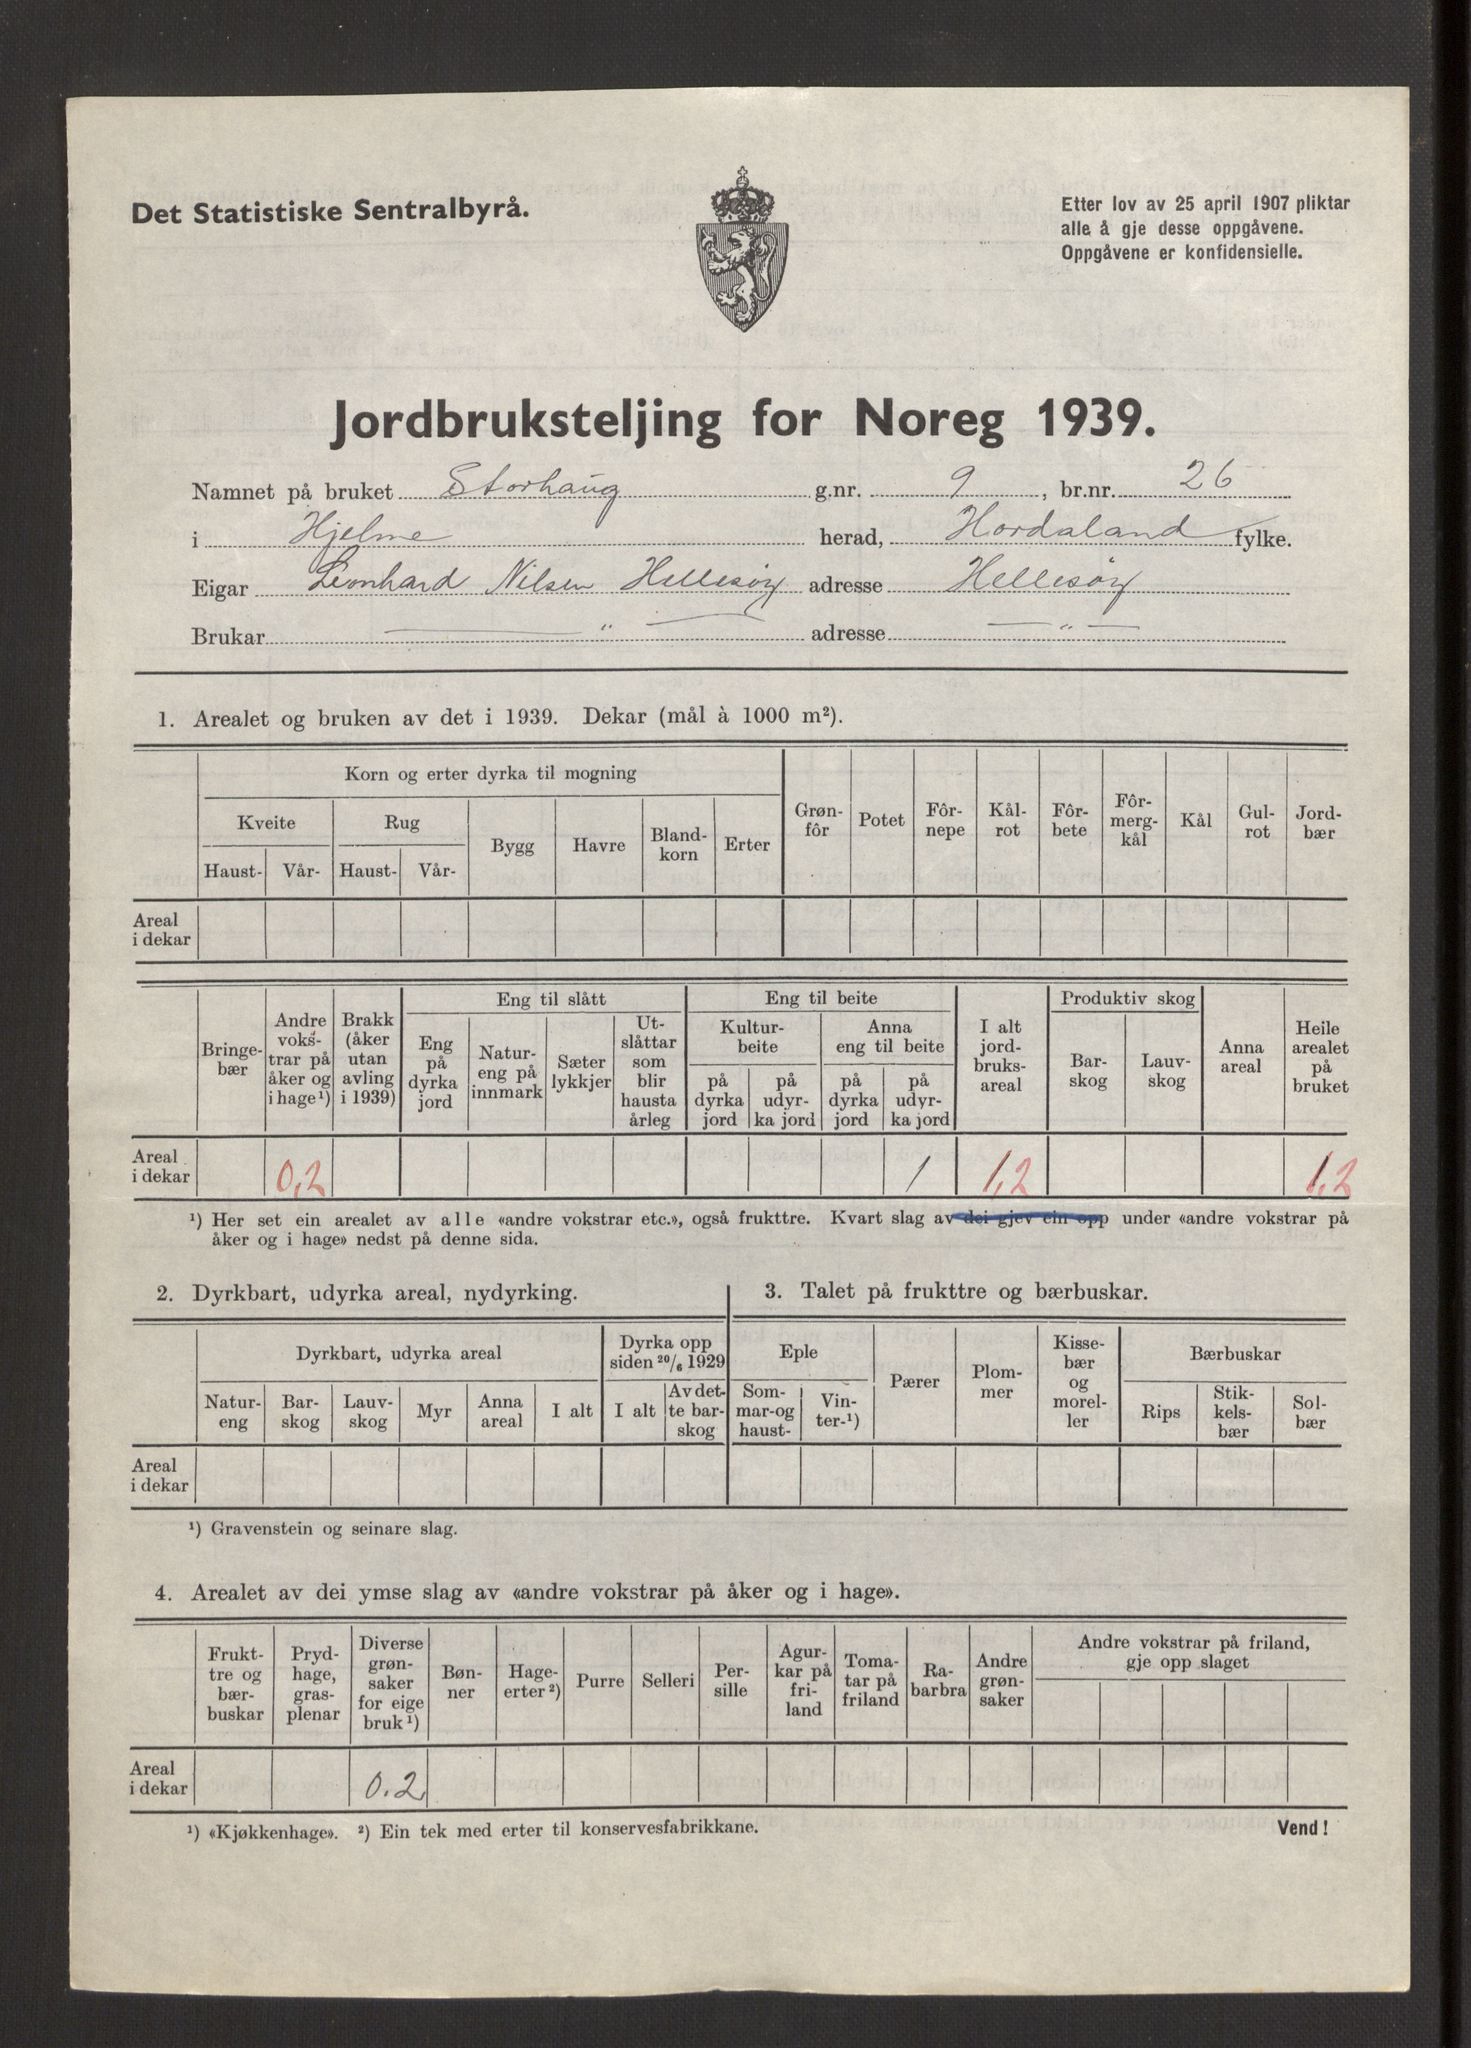 Det Statistiske Sentralbyrå.
Etter lov av 25 april 1907 pliktar
alle å gje desse oppgåvene.
Oppgåvene er konfidensielle.
Jordbruksteljing for Noreg 1939.
Namnet på bruket Storhaug g.nr. 9, br.nr. 26
i Hjelme herad, Hordaland fylke.
Eigar Leonhard Nilsen Hellesøy adresse Hellesøy
Brukar — " — adresse — " —
1. Arealet og bruken av det i 1939. Dekar (mål à 1000 m²).
Korn og erter dyrka til mogning
Kveite Rug
Haust- Vår- Haust- Vår-
Bygg
Havre
Bland-
korn
Erter
Grøn-
fôr
Potet
Fôr-
nepe
Kål-
rot
Fôr-
bete
Fôr-
mergkål
Kål
Gul-
rot
Jord-
bær
Areal
i dekar
Bringe-
bær
Andre
voks-
trar på
åker og
i hage¹)
Brakk
(åker
utan
avling
i 1939)
Eng til slått
Eng
på
dyrka
jord
Natur-
eng på
innmark
Sæter
lykkjer
Ut-
slåttar
som
blir
hausta
årleg
Eng til beite
Kultur-
beite
på
dyrka
jord
på
udyr-
ka jord
Anna
eng til beite
på
dyrka
jord
på
udyr-
ka jord
I alt
jord-
bruks-
areal
Produktiv skog
Bar-
skog
Lauv-
skog
Anna
areal
Heile
arealet
på
bruket
Areal
i dekar 0,2 1 1,2 1,2
¹) Her set ein arealet av alle «andre vokstrar etc.», også frukttre. Kvart slag av dei gjev ein opp under «andre vokstrar på
åker og i hage» nedst på denne sida.
2. Dyrkbart, udyrka areal, nydyrking.
Dyrkbart, udyrka areal
Natur-
eng
Bar-
skog
Lauv-
skog
Myr
Anna
areal
I alt
Dyrka opp
siden 20/6 1929
I alt
Av det-
te bar-
skog
3. Talet på frukttre og bærbuskar.
Eple
Som-
mar-og
haust-
Vin-
ter-¹)
Pærer
Plom-
mer
Kisse-
bær
og
morel-
ler
Bærbuskar
Rips
Stik-
kels-
bær
Sol-
bær
Areal
i dekar
¹) Gravenstein og seinare slag.
4. Arealet av dei ymse slag av «andre vokstrar på åker og i hage».
Frukt-
tre og
bær-
buskar
Pryd-
hage,
gras-
plenar
Diverse
grøn-
saker
for eige
bruk¹)
Bøn-
ner
Hage-
erter²)
Purre
Selleri
Per-
sille
Agur-
kar på
fri-
land
Toma-
tar på
friland
Ra-
barbra
Andre
grøn-
saker
Andre vokstrar på friland,
gje opp slaget
Areal
i dekar 0.2
¹) «Kjøkkenhage». ²) Ein tek med erter til konservesfabrikkane.
Vend!